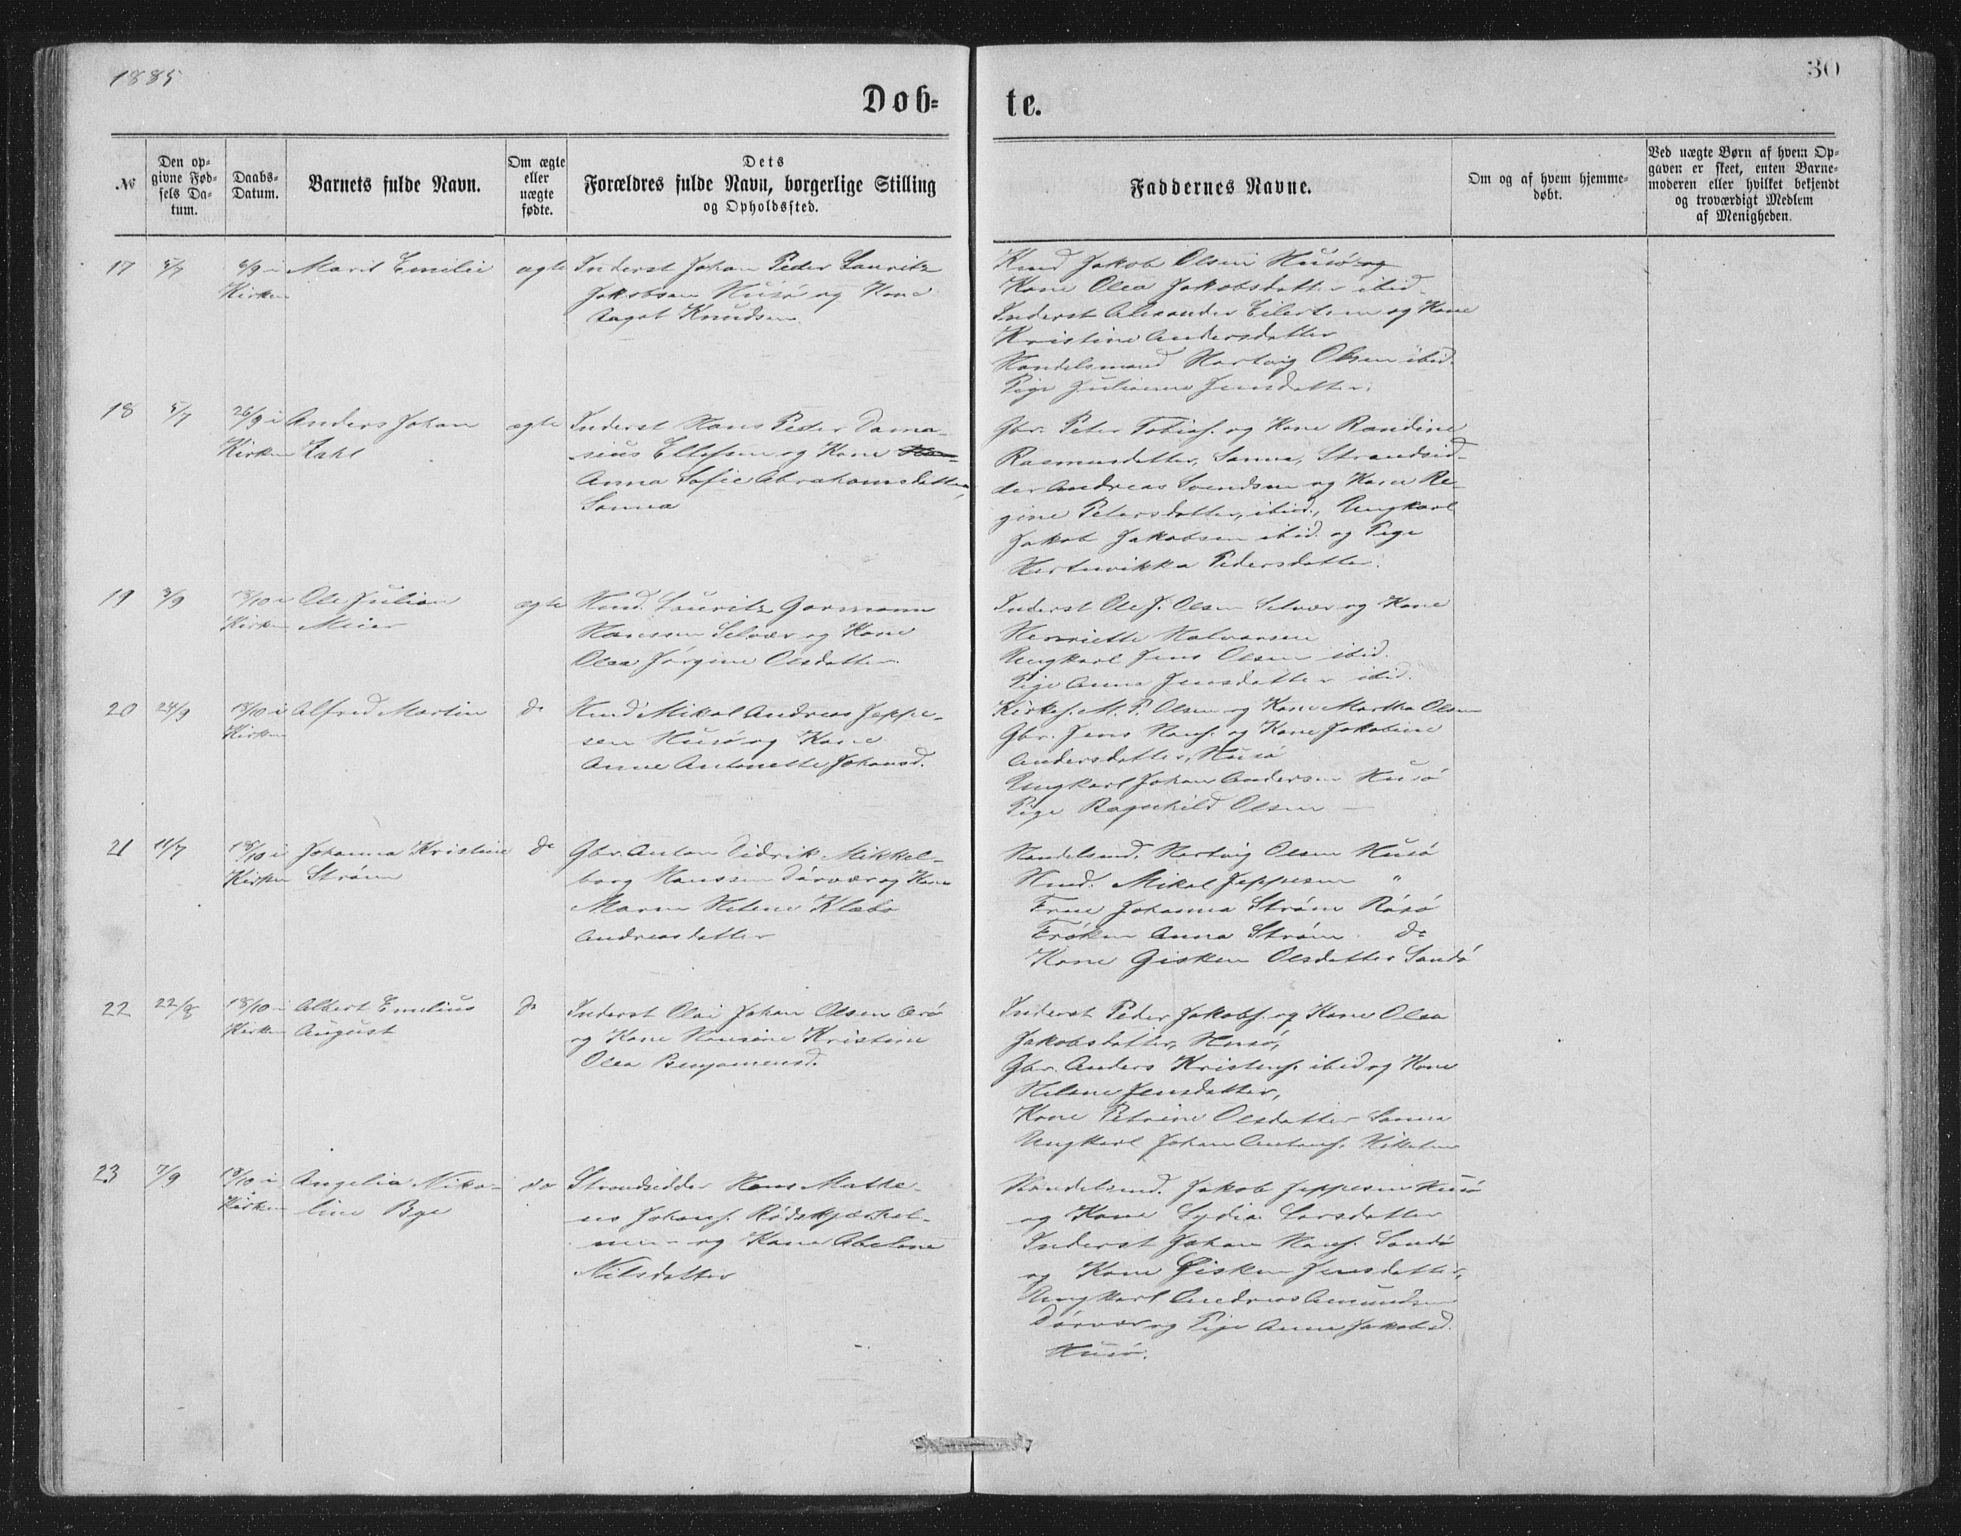 1885
30
Døb-
te.
№
Den op-
givne Fød-
sels Da-
tum.
Daabs-
Datum.
Barnets fulde Navn.
Om ægte
eller
uægte
fødte.
Dets
Forældres fulde Navn, borgerlige Stilling
og Opholdssted.
Faddernes Navne.
Om og af hvem hjemme-
døbt.
Ved uægte Børn af hvem Op-
gaven er skeet, enten Barne-
moderen eller hvilket bekjendt
og troværdigt Medlem
af Menigheden.
17
5/7
6/9 i
Kirken
Marit Emilie
ægte
Inderst Johan Peder Lauritz
Jakobsen Husø og Kone
Knudsen
Knud Jakob Olsen Husø og
Kone Olea Jakobsdatter ibid.
Inderst Alexander Eilertsen og Kone
Kristine Andersdatter
Handelsmand Hartvig Olsen ibid.
Pige Juliane Jensdatter.
18
5/7
26/9 i
Kirken
Anders Johan
ægte
Inderst Hans Peder Dama-
sius Ellefsen og Kone
Anna Sofie Abrahamsdatter,
Sanna
Gbr. Peter Tobias. og Kone Randine
Rasmusdatter, Sanna, Strandsid-
der Andreas Svendsen og Kone Re-
gine Petersdatter, ibid., Ungkarl
Jakob Jakobsen ibid. og Pige
Pedersdatter.
19
3/9
18/10 i
Kirken
Ole Julian
Meier
ægte
Hmd. Lauritz Gormann
Hanssen Selvær og Kone
Olea Jørgine Olsdatter.
Inderst Ole J. Olsen Selvær og Kone
Henriette Halvorsen
Ungkarl Jens Olsen ibid.
Pige Anna Jensdatter ibid.
20
24/9
18/10 i
Kirken
Alfred Martin
do
Hmd Mikal Andreas Jeppe-
sen Husø og Kone
Anne Antonette Johansd.
Kirkes. M. P. Olsen og Kone Martha Olsen
Gbr. Jens Hans. og Kone Jakobine
Andersdatter, Husø
Ungkarl Johan Andersen Husø
Pige Ragnhild Olsen —
21
11/7
18/10 i
Kirken
Johanna Kristine
Strøm
do
Gbr. Anton Didrik Mikkel-
borg Hanssen Dørvær og Kone
Maren Helene Klæbo
Andreasdatter
Handelsmd. Hartvig Olsen Husø
Hmd. Mikal Jeppesen "
Frue Johanna Strøm Råsø
Frøken Anna Strøm do
Kone Gisken Olsdatter Sandø
22
22/8
18/10 i
Kirken
Albert Emelius
August
do
Inderst Olai Johan Olsen
og Kone Hansine Kristine
Olea Benjaminsd.
Inderst Peder Jakobs. og Kone Olea
Jakobsdatter, Husø,
Gbr. Anders Kristens. ibid og Kone
Helene Jensdatter,
Kone Petrine Olsdatter Sanna
Ungkarl Johan Antons.
23
7/9
18/10 i
Kirken
Angelia Niko-
line Bye
do
Strandsidder Hans Mathe-
us Johans. Rødskjærhol-
men og Kone Abelone
Nilsdatter
Handelsmd. Jakob Jeppesen Husø
og Kone Lydia Larsdatter
Inderst Johan Hans. Sandø
og Kone Gisken Jensdatter,
Ungkarl Andreas Amundsen
Dørvær og Pige Anne Jakobsd.
Husø.